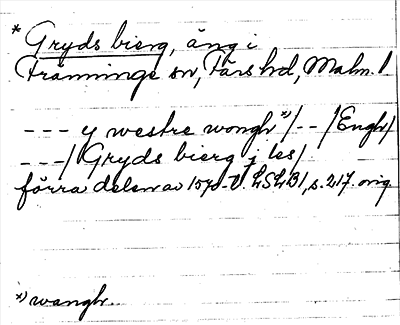 * Gryds bierg, äng i
Tranninge sn, Färs hd, Malm. l
--- y westre wongh *)/--/Engh/
---/ Gryds bierg j les/
förra delen av 1570-t. LSLB1, s. 217. orig.
*) wangh.